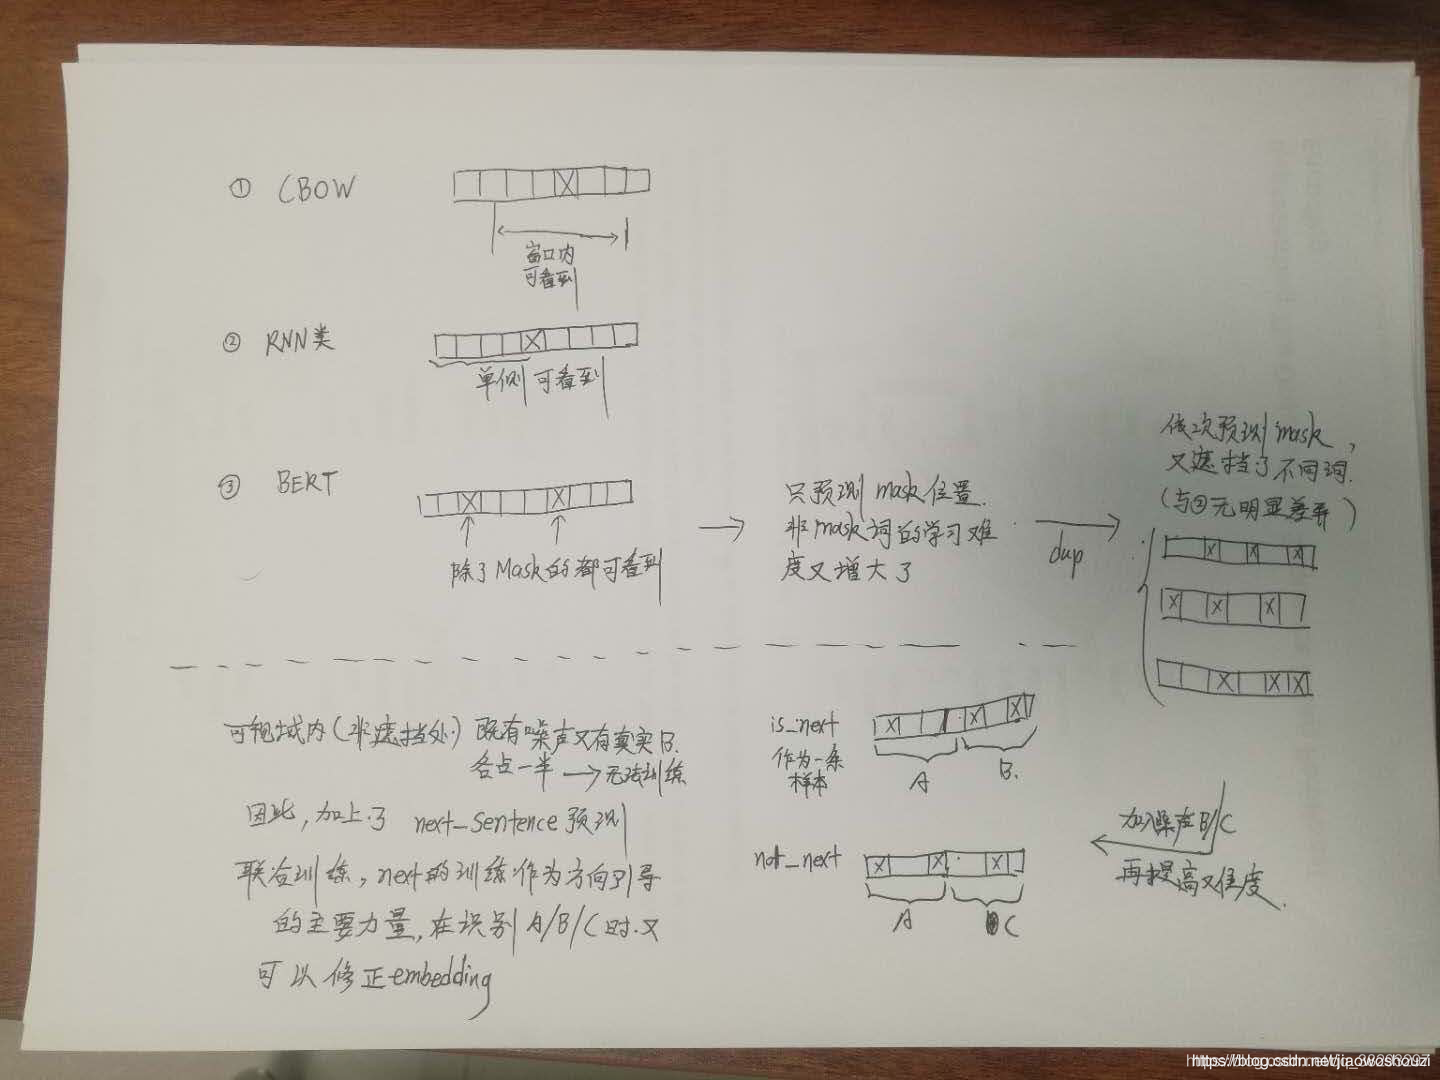 ① CBOW
窗口内
可看到
② RNN类
单侧可看到
③ BERT
除了Mask的都可看到
只预测mask位置.
非mask词的学习难
度又增大了
dup
依次预测mask,
又遮挡了不同词.
(与②无明显差异)
可视域内(非遮挡处)既有噪声又有真实B.
各占一半→无法训练
因此,加上了 next_sentence预测
联合训练,next的训练作为方向引导
的主要力量,在识别A/B/C时又
可以修正embedding
is_next
作为一条
样本
A
B.
not_next
A
C
加入噪声B/C
再提高难度.
https://blog.csdn.net/jiaowoshouzi